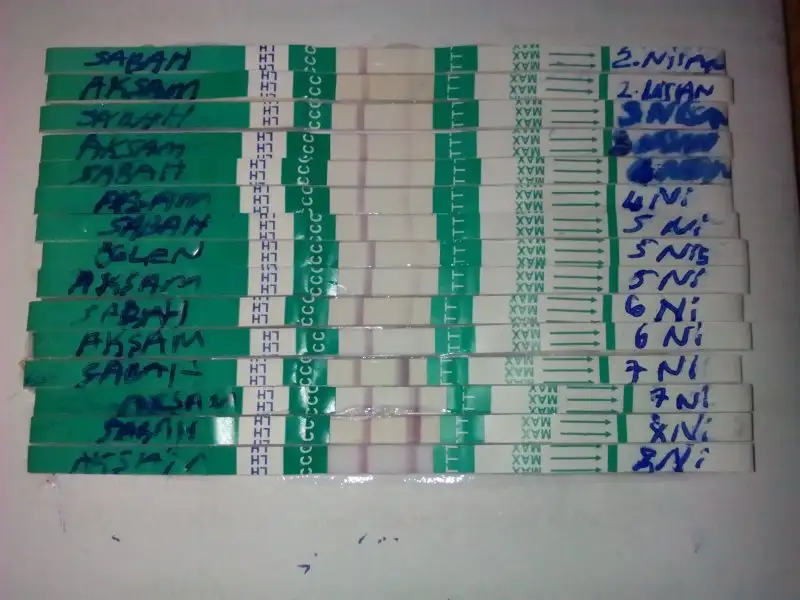 SABAH LH CCC TT MAX 2.NİSAN
AKSAM LH CCC TT MAX 2.NİSAN
SABAH LH CCC TT MAX 3 NİSAN
AKSAM LH CCC TT MAX
SABAH LH CCC TT MAX
AKSAM LH CCC TT MAX 4 Ni
SABAH LH CCC TT MAX 5 Ni
ÖGLEN LH CCC TT MAX 5 NİS
AKSAM LH CCC TT MAX 5 Ni
SABAH LH CCC TT MAX 6 Ni
AKSAM LH CCC TT MAX 6 Ni
SABAH LH CCC TT MAX 7 Ni
AKSAM LH CCC TT MAX 7 Ni
SABAH LH CCC TT MAX 8 Ni
AKSAM LH CCC TT MAX 8 Ni